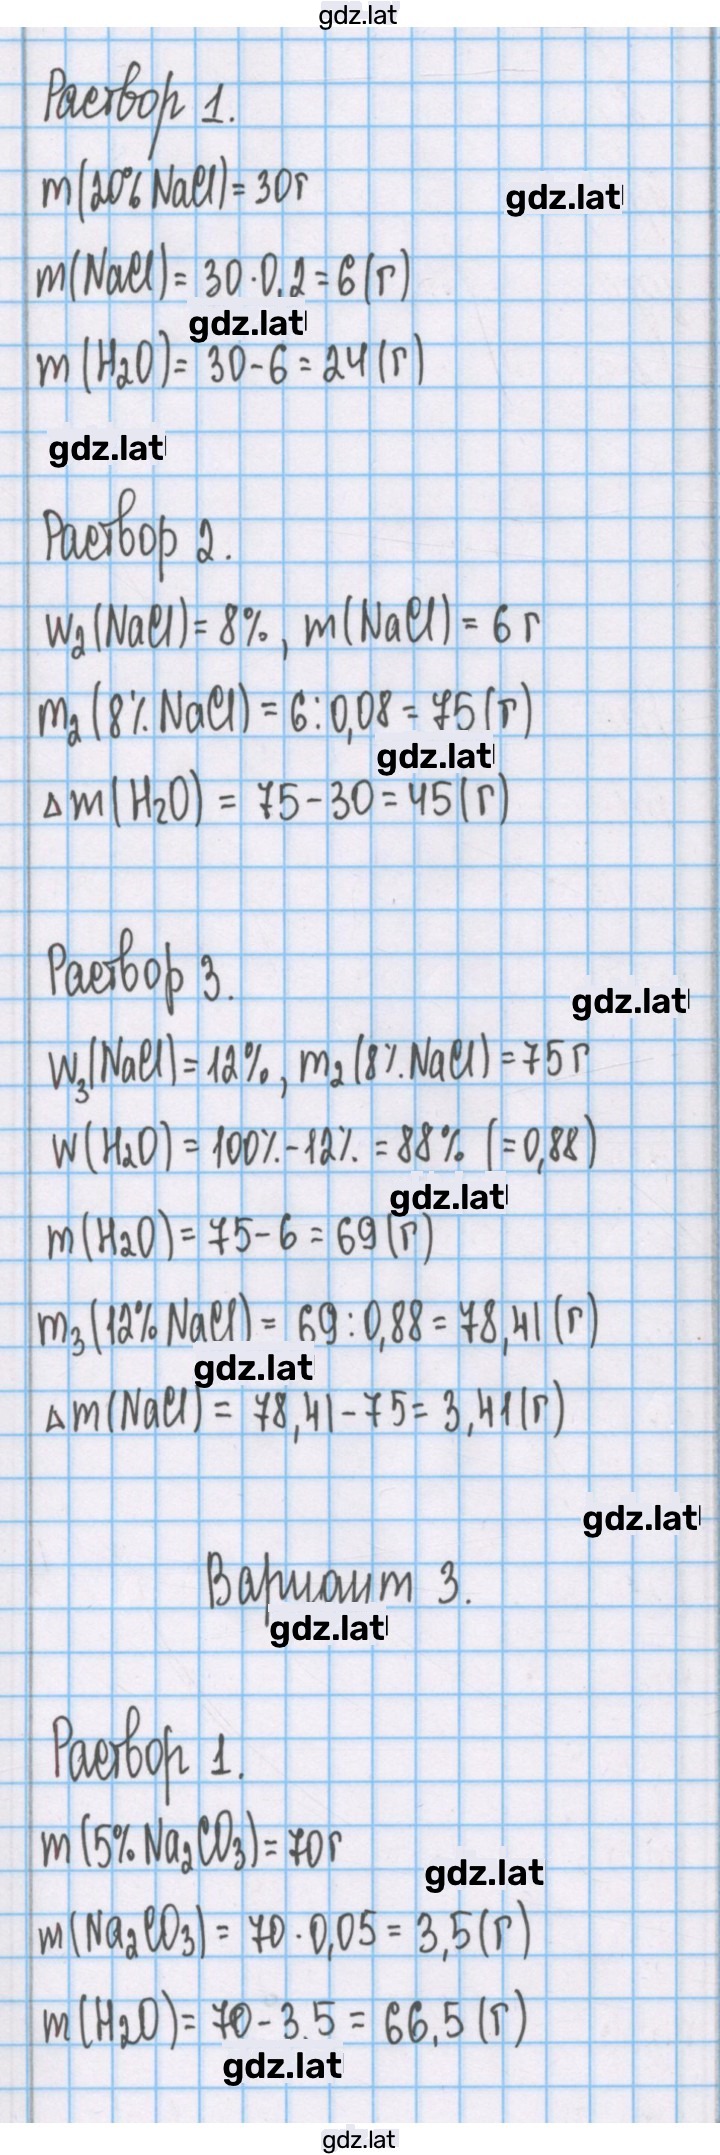 gdz.lat
Раствор 1.
m(20% NaCl) = 30 г
gdz.lat
m(NaCl) = 30 · 0,2 = 6 (г)
gdz.lat
m(H₂O) = 30 - 6 = 24 (г)
gdz.lat
Раствор 2.
w₂(NaCl) = 8%, m(NaCl) = 6 г
m₂(8% NaCl) = 6 : 0,08 = 75 (г)
gdz.lat
Δm(H₂O) = 75 - 30 = 45 (г)
Раствор 3.
gdz.lat
w₃(NaCl) = 12%, m₂(8% NaCl) = 75 г
w(H₂O) = 100% - 12% = 88% (= 0,88)
gdz.lat
m(H₂O) = 75 - 6 = 69 (г)
m₃(12% NaCl) = 69 : 0,88 = 78,41 (г)
gdz.lat
Δm(NaCl) = 78,41 - 75 = 3,41 (г)
gdz.lat
Вариант 3.
gdz.lat
Раствор 1.
m(5% Na₂CO₃) = 70 г
gdz.lat
m(Na₂CO₃) = 70 · 0,05 = 3,5 (г)
m(H₂O) = 70 - 3,5 = 66,5 (г)
gdz.lat
gdz.lat